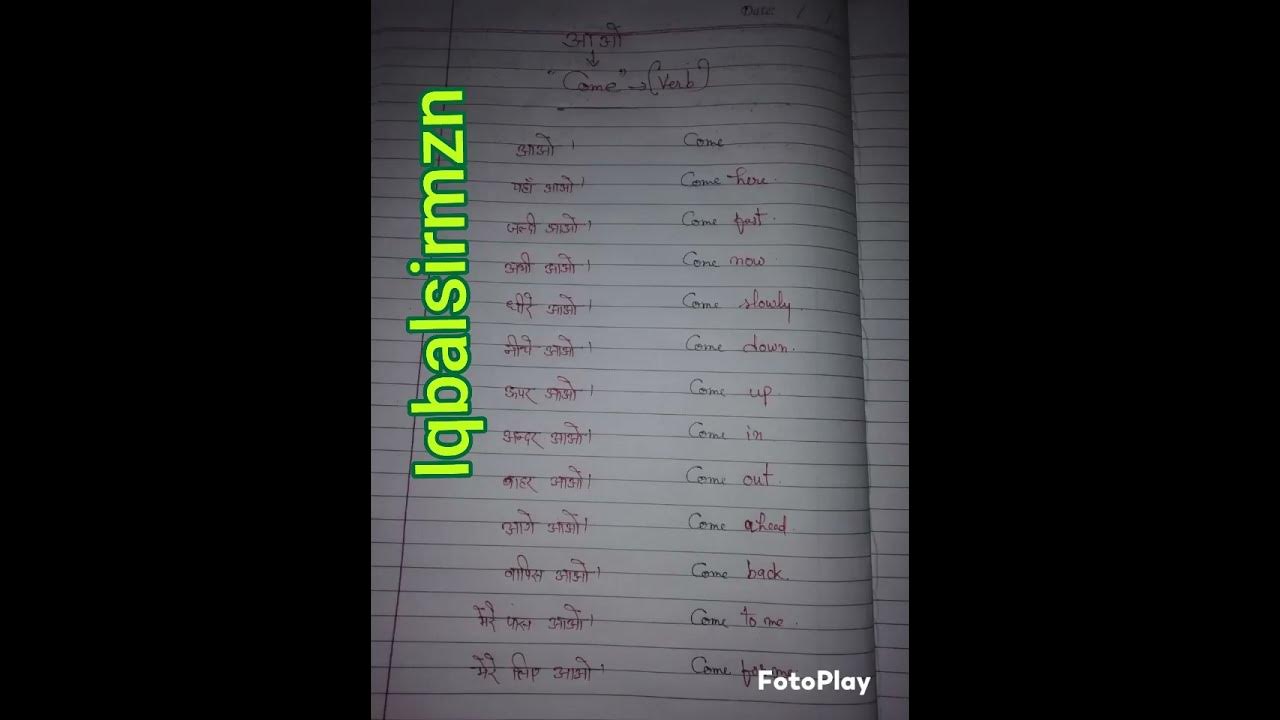 Date: / /
आओ
"Come" → (Verb)
आओ । Come
यहाँ आओ । Come here.
जल्दी आओ । Come fast.
अभी आओ । Come now.
धीरे आओ । Come slowly.
नीचे आओ । Come down.
ऊपर आओ । Come up.
अन्दर आओ । Come in
बाहर आओ । Come out.
आगे आओ । Come ahead.
वापिस आओ । Come back.
मेरे पास आओ । Come to me.
मेरे लिए आओ । Come for me.
Iqbalsirmzn
FotoPlay